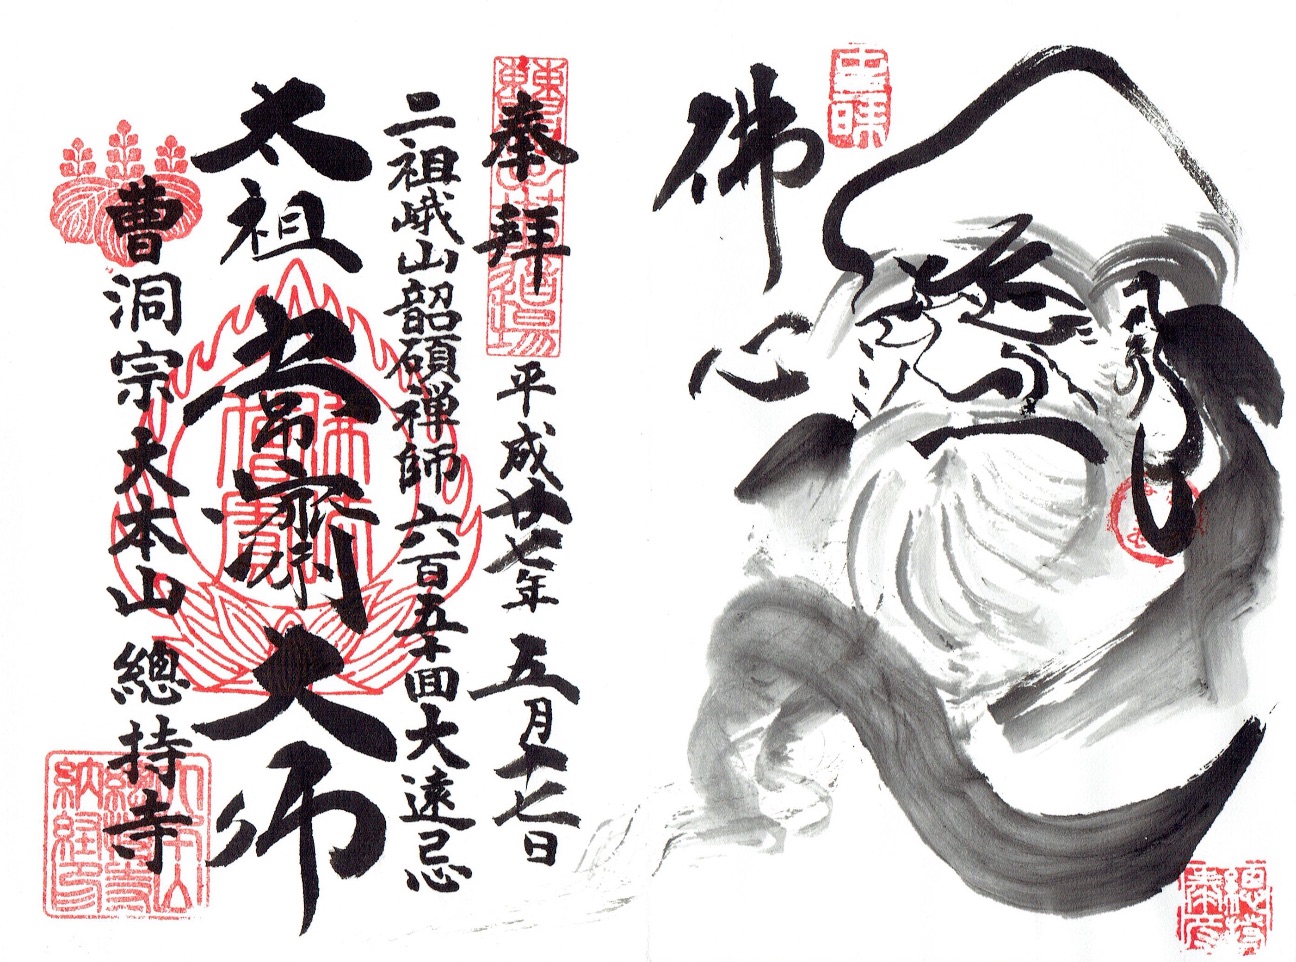 佛心
奉拝
平成廿七年五月十七日
二祖峨山韶碩禅師六百五十回大遠忌
太祖常済大師
曹洞宗大本山總持寺